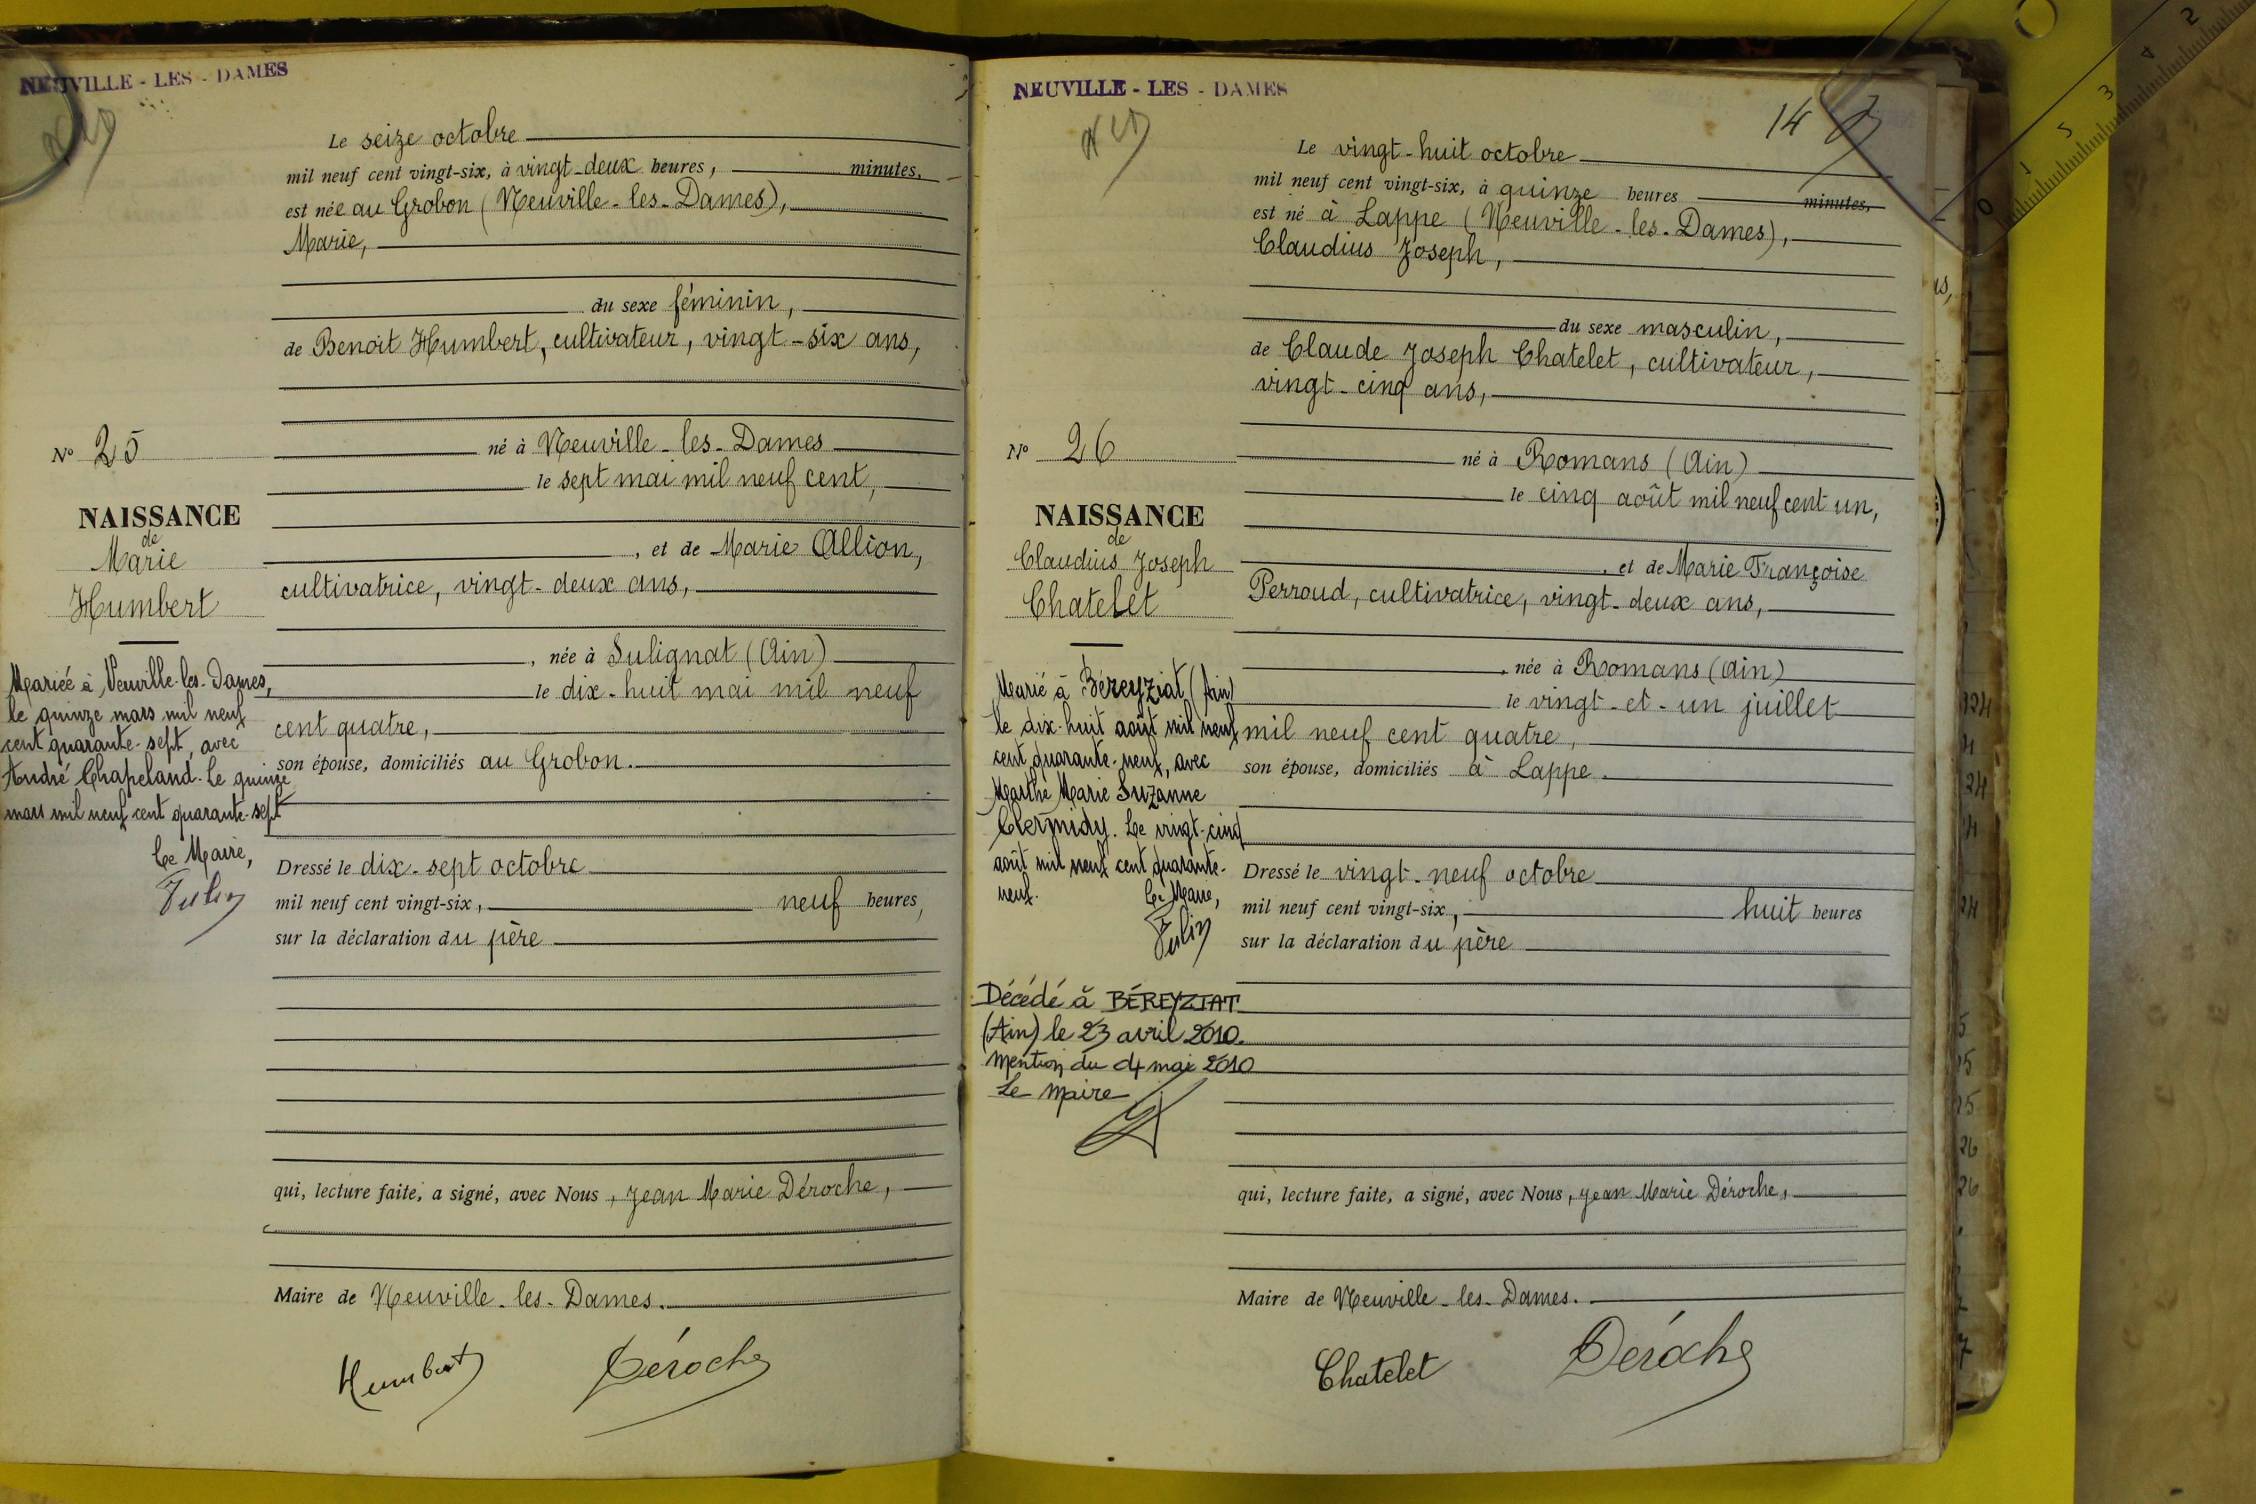 NEUVILLE - LES - DAMES
Le seize octobre
mil neuf cent vingt-six, à vingt-deux heures, minutes,
est née au Grobon (Neuville-les-Dames),
Marie,
du sexe féminin,
de Benoit Humbert, cultivateur, vingt-six ans,
né à Neuville-les-Dames
le sept mai mil neuf cent,
, et de Marie Allion,
cultivatrice, vingt-deux ans,
, née à Sulignat (Ain)
le dix-huit mai mil neuf
cent quatre,
son épouse, domiciliés au Grobon.
Dressé le dix-sept octobre
mil neuf cent vingt-six, neuf heures,
sur la déclaration du père
qui, lecture faite, a signé, avec Nous, Jean Marie Déroche,
Maire de Neuville-les-Dames.
Humbert Déroche
N° 25
NAISSANCE
de
Marie
Humbert
Mariée à Neuville-les-Dames,
le quinze mars mil neuf
cent quarante-sept, avec
André Chapeland. Le quinze
mars mil neuf cent quarante-sept
Le Maire,
NEUVILLE - LES - DAMES
14
Le vingt-huit octobre
mil neuf cent vingt-six, à quinze heures minutes,
est né à Lappe (Neuville-les-Dames),
Claudius Joseph,
du sexe masculin,
de Claude Joseph Chatelet, cultivateur,
vingt-cinq ans,
né à Romans (Ain)
le cinq août mil neuf cent un,
, et de Marie Françoise
Perroud, cultivatrice, vingt-deux ans,
, née à Romans (Ain)
le vingt-et-un juillet
mil neuf cent quatre,
son épouse, domiciliés à Lappe.
Dressé le vingt-neuf octobre
mil neuf cent vingt-six, huit heures
sur la déclaration du père
qui, lecture faite, a signé, avec Nous, Jean Marie Déroche,
Maire de Neuville-les-Dames.
Chatelet Déroche
N° 26
NAISSANCE
de
Claudius Joseph
Chatelet
Marié à Béreyziat (Ain)
le dix-huit août mil neuf
cent quarante-neuf, avec
Marthe Marie Suzanne
Clermidy. Le vingt-cinq
août mil neuf cent quarante-
neuf. Le Maire,
Décédé à BÉREYZIAT
(Ain) le 23 avril 2010.
Mention du 4 mai 2010
Le Maire